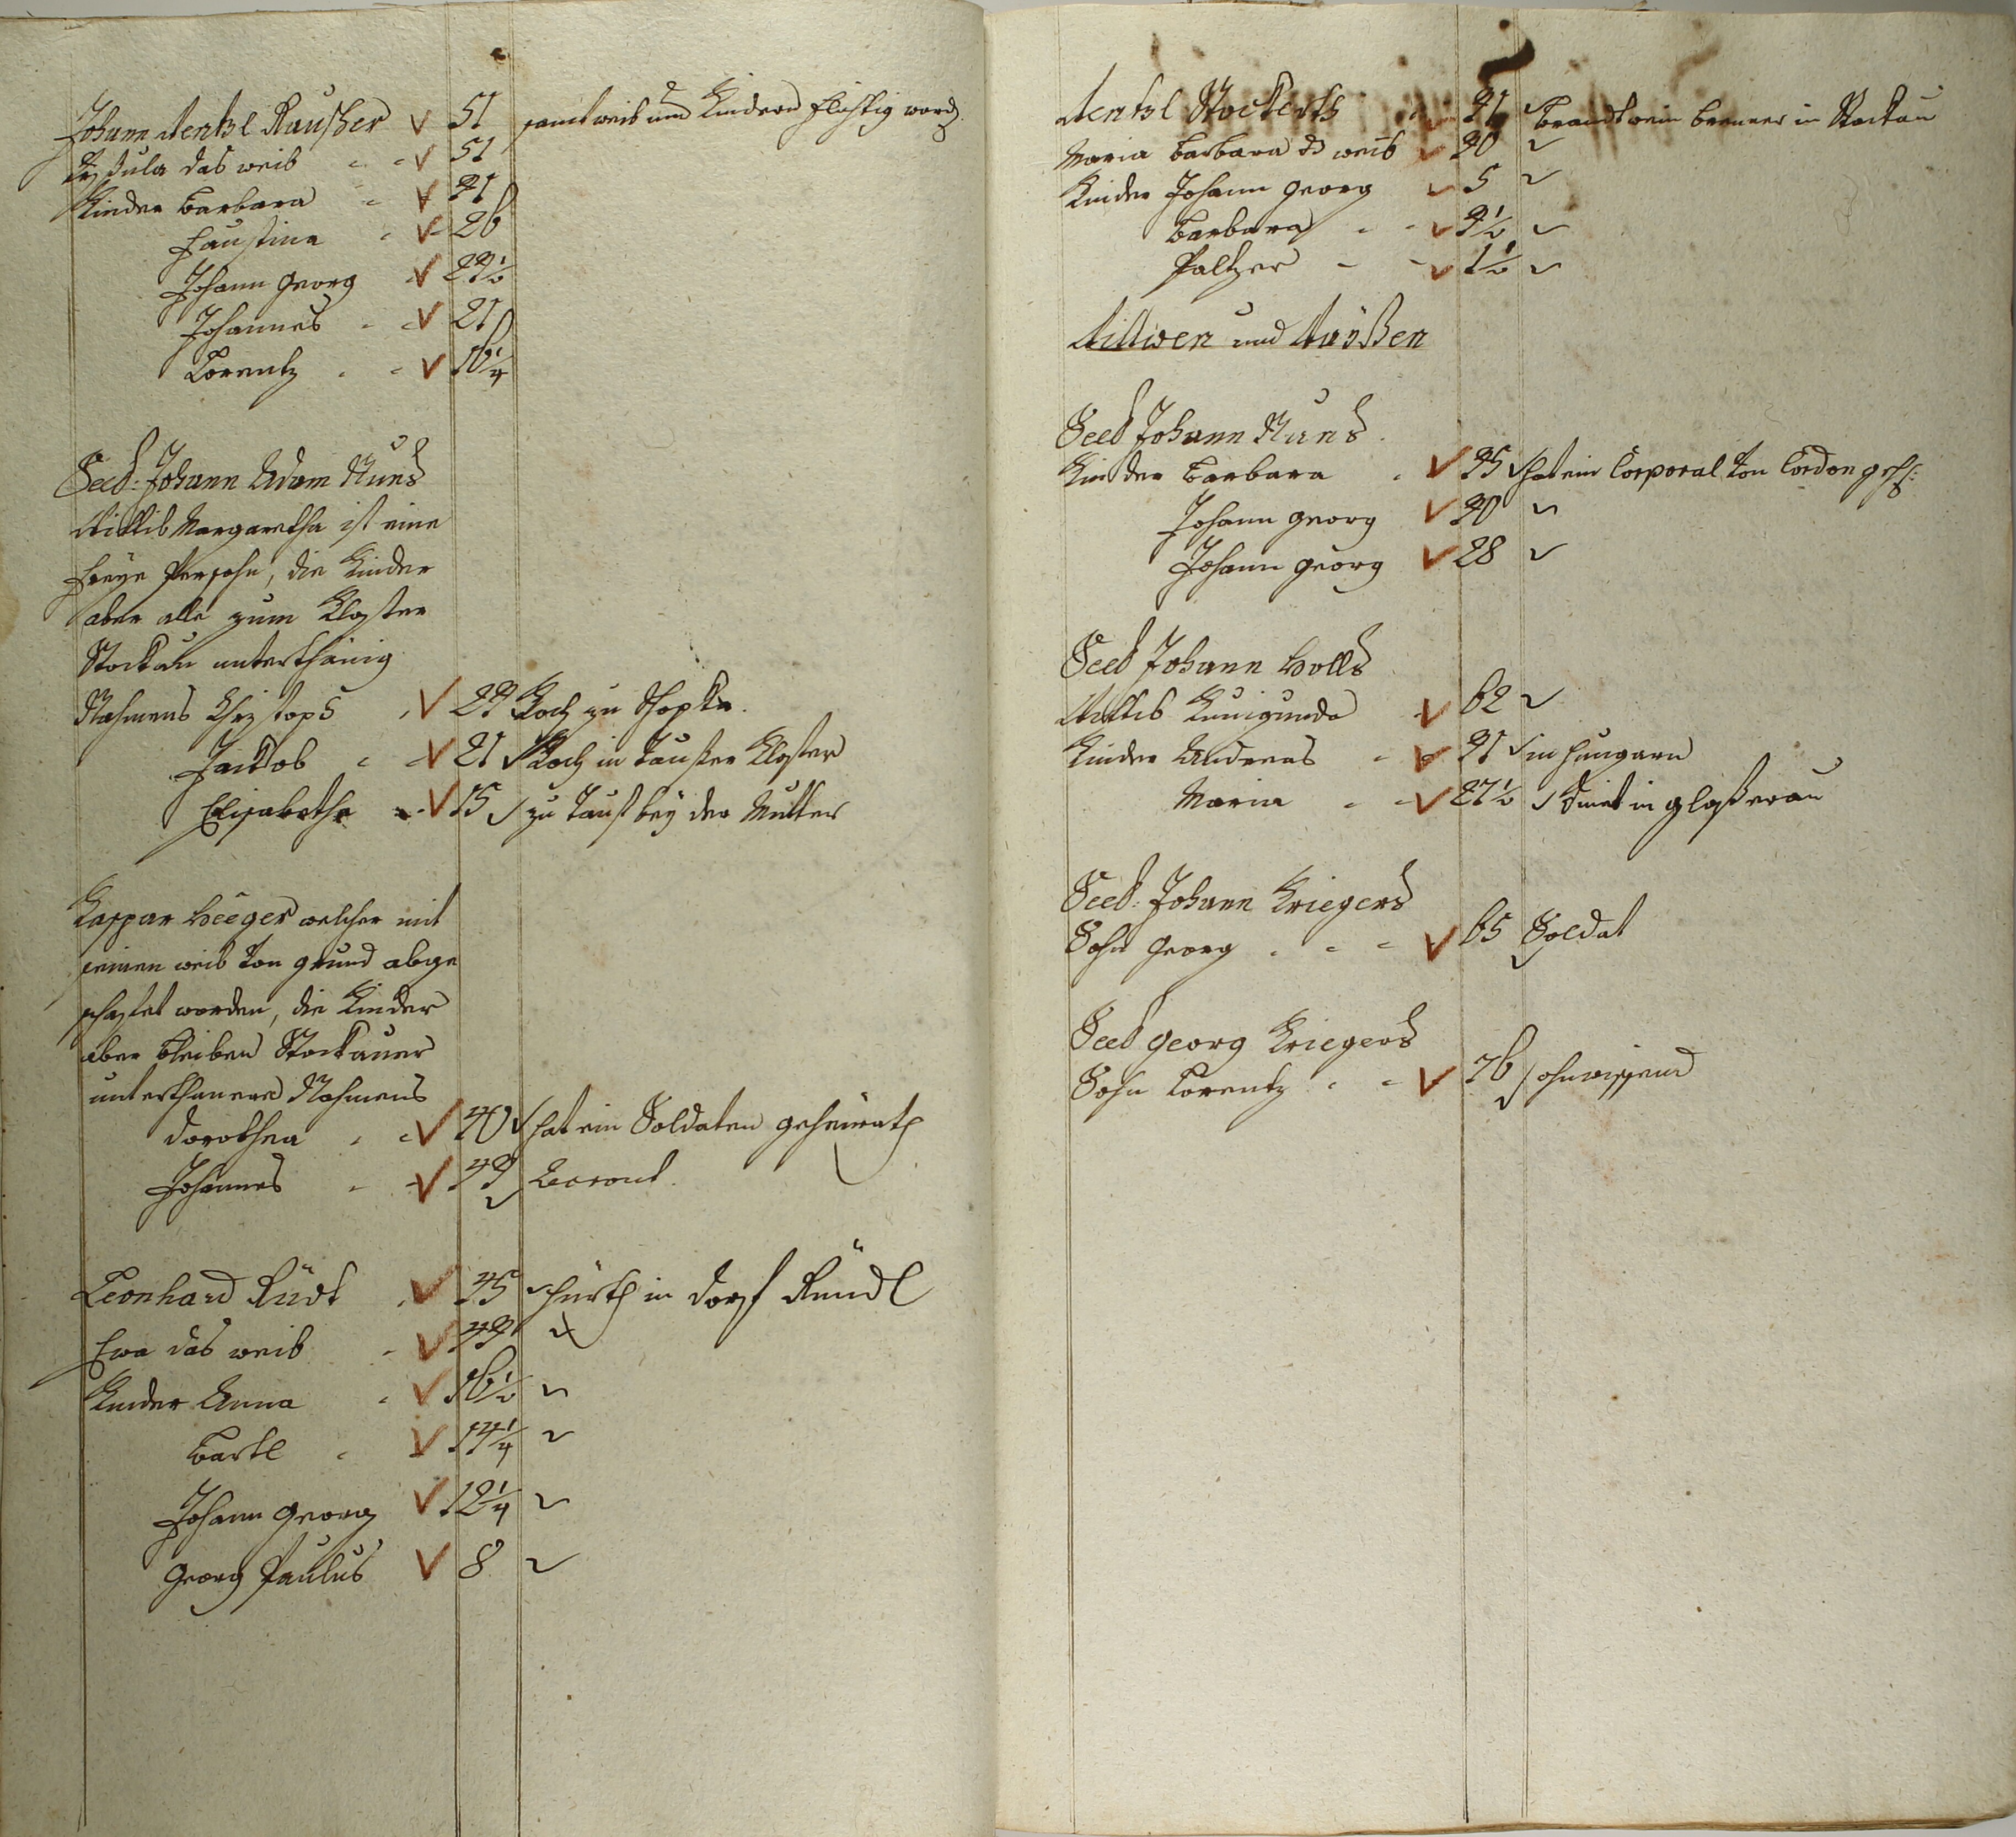 Johann Wentzl Rauscher 51 samt weib und Kindern flichtig word.
Ursula das weib 51
Kinder Barbara 31
Faustina 26
Johann Georg 23 1/2
Johannes 21
Lorentz 16 1/4
Seel: Johann Adam Kuns
Wittib Margaretha ist eine
freÿe Persohn, die Kinder
aber alle zum Kloster
Stockau unterthänig
Nahmens Christoph 23 Koch zu
Jackob 21 Koch in Tauser Kloster
Elisabetha 15 zu Taus beÿ der Mutter
Kaspar Heeger welcher mit
seinen weib von grund abge
schaftet worden, die Kinder
aber bleiben Stockauer
unterthanere Nahmens
Dorothea 40 hat ein Soldaten geheirath
Johannes 33
Leonhard Rüdt 45 hürth in Dorf
Ewa das weib 43
Kinder Anna 16 1/2
Bartl 14 1/4
Johann Georg 12 1/4
Georg Paulus 8
Wentzl Stockerth 31 Brandtwein brenner in Stockau
Maria Barbara das weib 30
Kinder Johann Georg 5
Barbara 3 1/2
Paltzer 1 1/2
Wittwen und Waÿßen
Seel Johann Kuns
Kinder Barbara 35 hat ein Corporal von Cordon
Johann Georg 30
Johann Georg 28
Seel Johann Holls
Wittib Kunigunda 62
Kinder Andreas 31 in Hungarn
Maria 27 1/2 dint in
Seel: Johann Kriegers
Sohn Georg 65 Soldat
Seel Georg Kriegers
Sohn Lorentz 36 ohnwissend